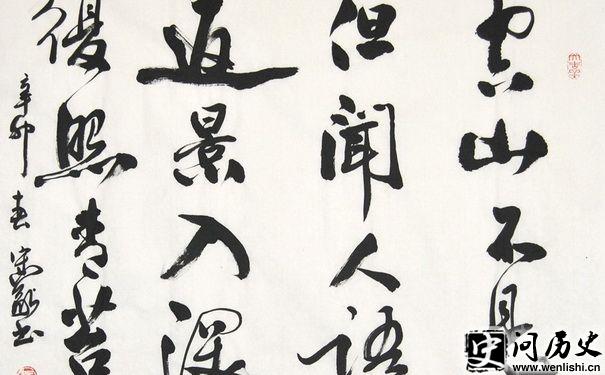 空山不見
但聞人語
返景入深
復照青苔
辛卯春宋書
史
问历史
www.wenlishi.cn